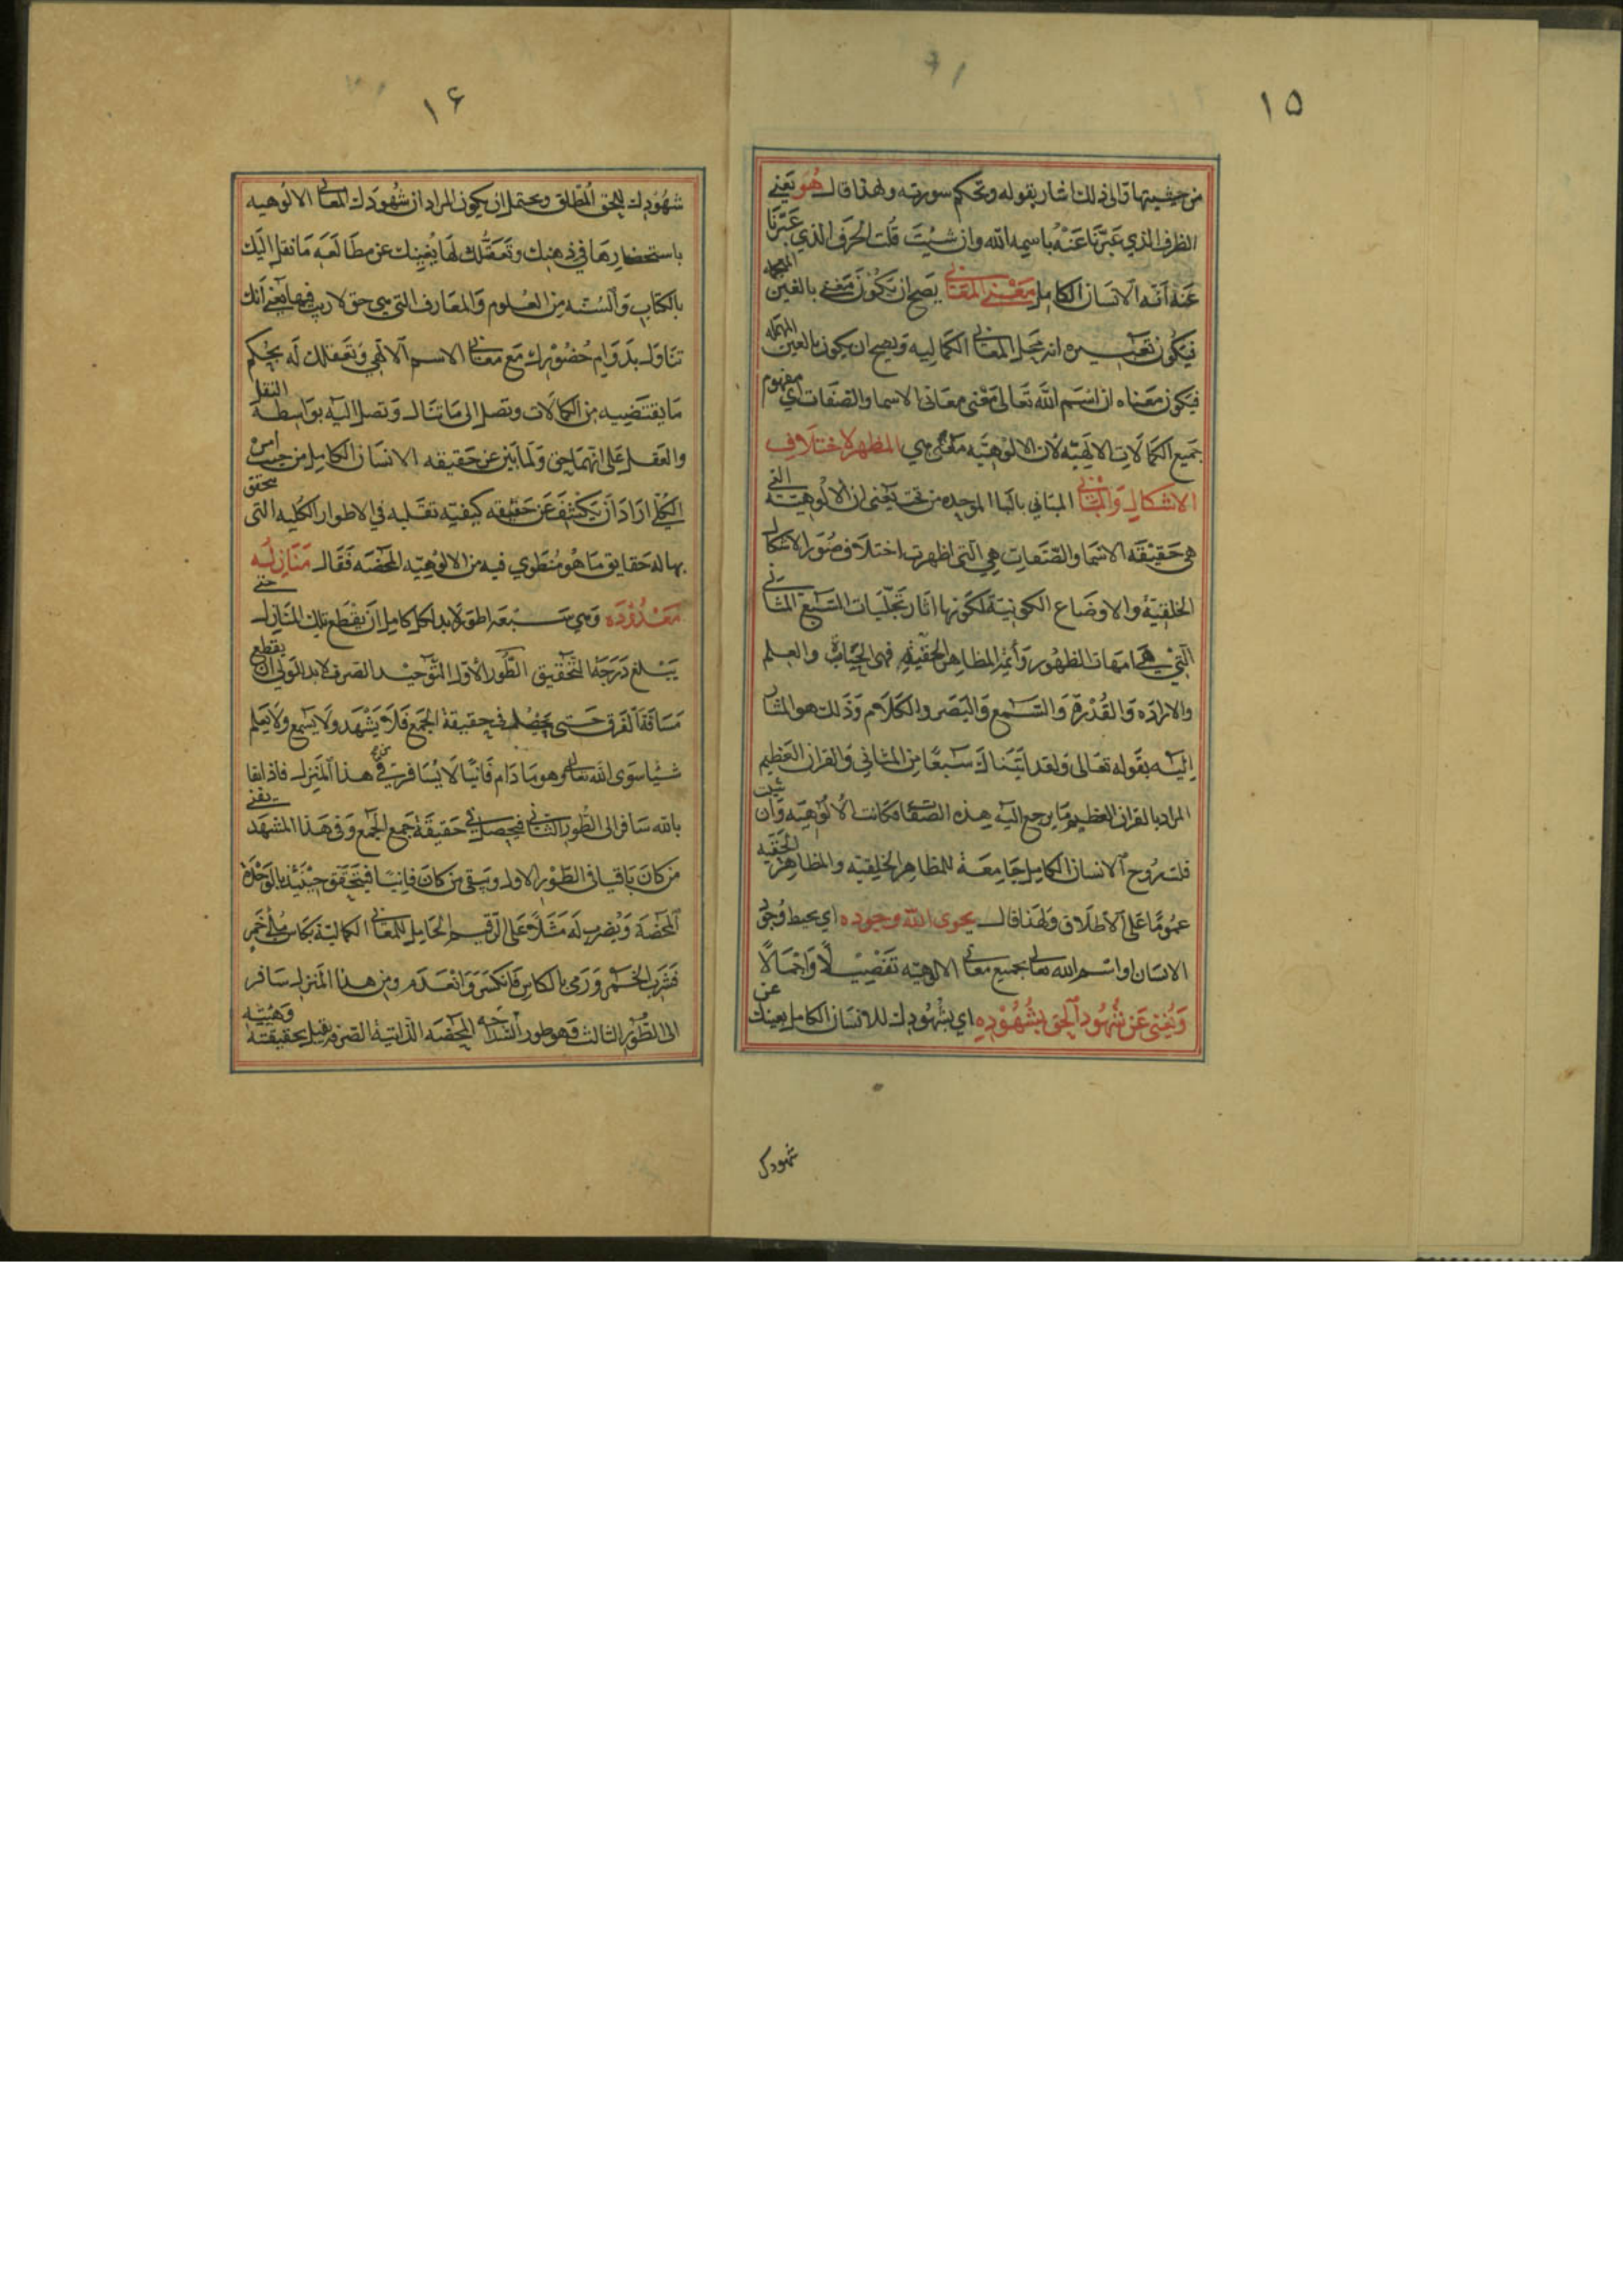 ١٥
من حيثيتها والى ذلك اشار بقوله وتحكم سورته ولهذا قال هُوَ يَعني
الظرف الذي عَبَّرنَا عَنْهُ باسمه الله وان شئتَ قلت الحَرف الذي عَبَّرنَا
عَنهُ انّه الانسَان الكامِل مَغْني المعَاني يَصح ان يَكُونَ مَغني بالغين المعجمه
فيَكُون تعبيره انه مَحل المعَاني الكمالِيه وَيصح ان يكون بالعين المهمله
فيَكون مَعناه ان اسم الله تَعالى مَعْنى معَاني الاسما والصّفَات اي مفهوم
جَميع الكمَالاتِ الالهيّه لان الالوهيَّه مَعنى هي المظهر لاختلافِ
الاشكالِ وَالمبَاني المبَاني بالبا الموحده من تحت يَعنى ان الالُوهيّة التي
هى حَقيقَة الاسمَا والصّفات هي التى اظهرت اختلاف صُوَر الاشكال
الخلقيّة والاوضَاع الكونيّة لكونها اثار تَجليَات السَّبع المثاني
التي هي امهَات الظهُور وَأئمّة المظاهِر الحقيّه فهى الحيَاة والعِلم
والاراده وَالقُدْرة وَالسَّمع وَالبَصَر والكلام وَذَلك هو المشار
اليه بقَوله تعَالى ولقد اتَينَاك سَبعًا من المثاني وَالقران العَظيم
المراد بالقران العظيم مَا يرجع اليه هذه الصفات فكانت الالُوهيّه وَان شئت
قلت رُوح الانسان الكامِل جَامِعَة للمظاهِر الخلقيّه والمظاهِر الحقيّه
عمُومًا عَلى الاطلاق وَلهَذا قال يحوى الله وجوده اي يحيط وُجود
الانسَان او اسم الله تعالى بجميع معَاني الالهيّه تَفصيلًا وَاجمَالًا
وَيُغنى عَن شُهُود الحق بشُهُودِهِ اي بشهُودِك للانسَان الكامل يغنيك عن
شهودك
١٦
شهُودِك للحق المُطلق ويحتمل ان يكون المراد ان شُهُودَك لمعَاني الالُوهيه
باستحضارهَا في ذهنك وتَعقّلك لهَا يُغنيك عن مطَالعَه مَا نقل اليَك
بالكتَابِ وَالسُّنّه من العلُوم وَالمعَارف التي هي حق لا ريب فيهَا يَعني انك
تنَاوَل بدَوَام حُضُورك مَع معَاني الاسم الالهي وَتعَقلك لَه بحُكم
مَا يقتَضيه من الكمَالات وتصل الى مَا تنَال وَتصل اليه بوَاسِطة النقل
والعَقل عَلى انّهمَا حق وَلمَا بَيّن عن حَقيقه الانسَان الكامِل من حيث امره
الكُلّي ارَادَ اَن يَكشف عَن حَقيقه كيفيّه تقلّبه في الاطوار الكليه التى تحقق
بها له حَقايق مَا هُوَ مُنطَوي فيه من الالوهيّه المحضَه فقَال مَنَازلُه
مَعْدُودَه وَهي سَبْعَة اطوَر لا بد لكل كامل ان يقطع تلك المنَازل حتى
يَبْلغ دَرَجَة التّحقيق الطّورُ الاول التّوحيد الصّرف لا بد للوَلي ان يقطع
مَسَافَة الفَرق حَتى يحصل في حقيقة الجَمع فَلا يَشْهد وَلا يسمع ولا يَعلم
شيئًا سوَى الله تعالى وهو مَا دَام فَانيًا لا يُسَافر عن هذا المَنزل فاذا بقا
بالله سَافر الى الطّور الثاني فيحصل في حَقيقة جَمع الجَمع وَفي هَذا المشهد يفنى
من كانَ بَاقيًا في الطّوْر الاول ويَبقى من كانَ فانيًا فيتَحقق حِينَئذ بالوَحْدة
المحضَة وَيُضرب لَه مَثلًا عَلى الرقيم الحَامل للمعَاني الكماليّة بكاس مُلئ خَمر
فشَرِبَ الخَمر وَرَمى بالكاس فانكسَر وَانعَدَم ومن هذا المَنزل سَافر
الى الطّوْر الثالث وَهو طور السّذاجه المحضَه الذّاتيّة الصّرفه